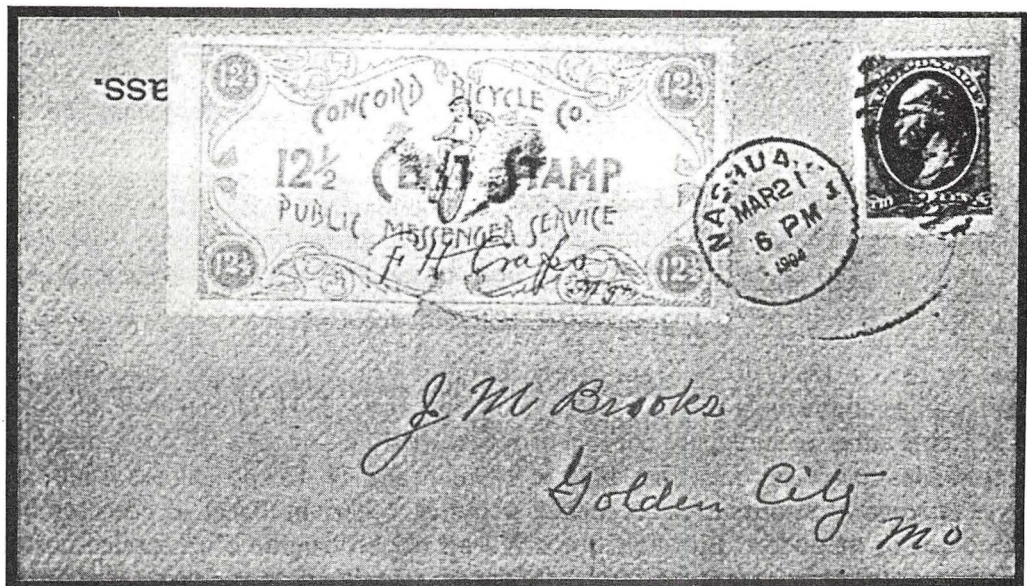 ass.
12½ 12½
CONCORD BICYCLE Co.
12½ CENT STAMP
PUBLIC MESSENGER SERVICE
F H Crapo
Mgr.
12½ 12½
NASHUA
MAR 21
6 PM
J M Brooks
Golden City
Mo